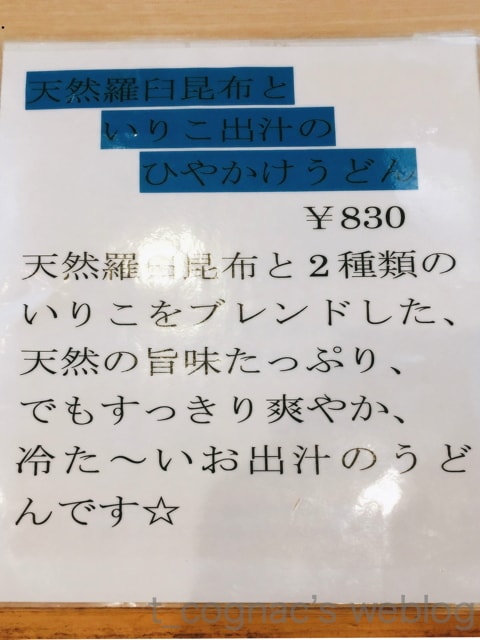 天然羅臼昆布と
いりこ出汁の
ひやかけうどん
￥830
天然羅臼昆布と2種類の
いりこをブレンドした、
天然の旨味たっぷり、
でもすっきり爽やか、
冷た～いお出汁のうど
んです☆
t_cognac's weblog